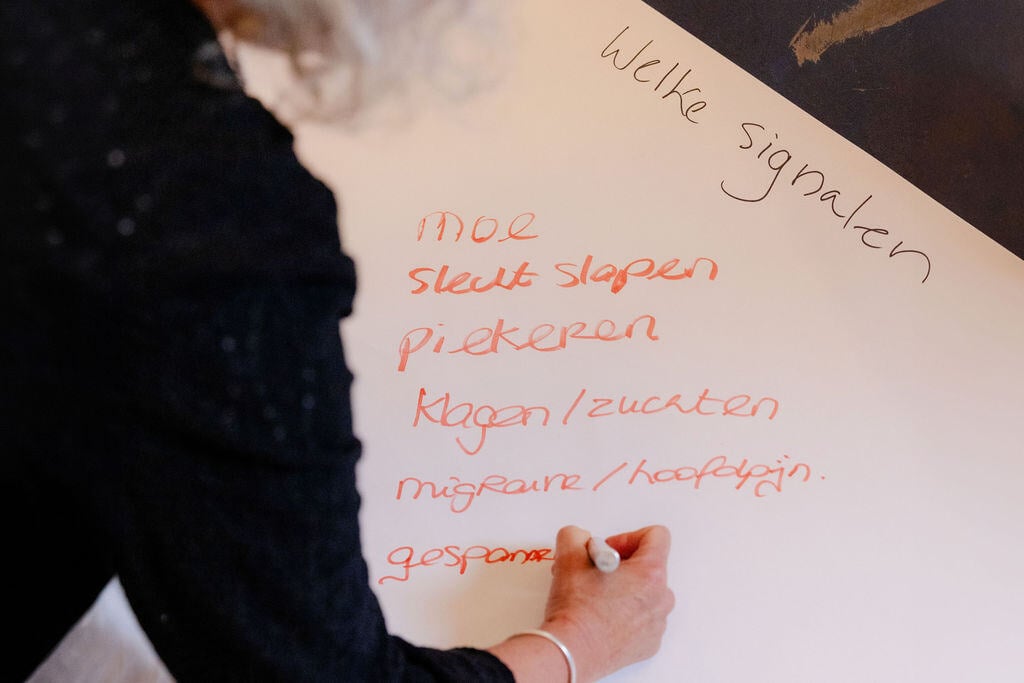 Welke signalen
moe
slecht slapen
piekeren
klagen/zuchten
migraine/hoofdpijn.
gespanne